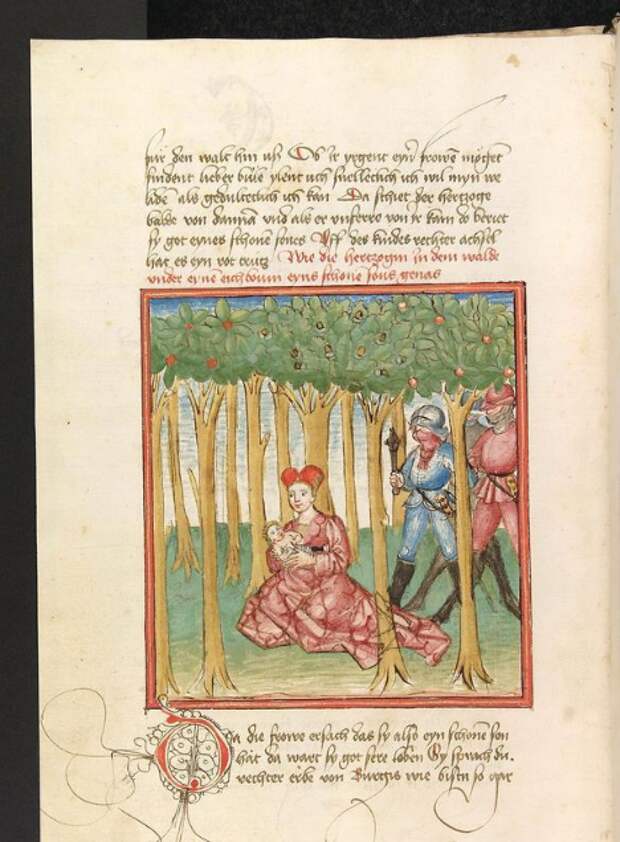 für den walt hin uß Ob ir yrgent eyn frowē mögēt
findent lieber bube ylent uch snelleclich ich wil myn we
liden als gedulteclich ich kan Da schiet der hertzoge
babe von dannā vnd als er vnferro von ir kam do beriet
sy got eynes schonē sones Vff des kindes rechter achsel
hat es eyn rot crutz Wie die hertzogin jn dem walde
vnder eynē eichboum eyns schone sons genas
Da die frowe ersach das sy also eyn schonē son
hat da wart sy got sere loben Sy sprach du
rechter erbe von Burgis wie bistu so